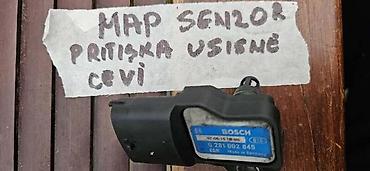 MAP SENZOR
PRITISKA USISNE
CEVI
BOSCH
0 281 002 845
Made in Germany